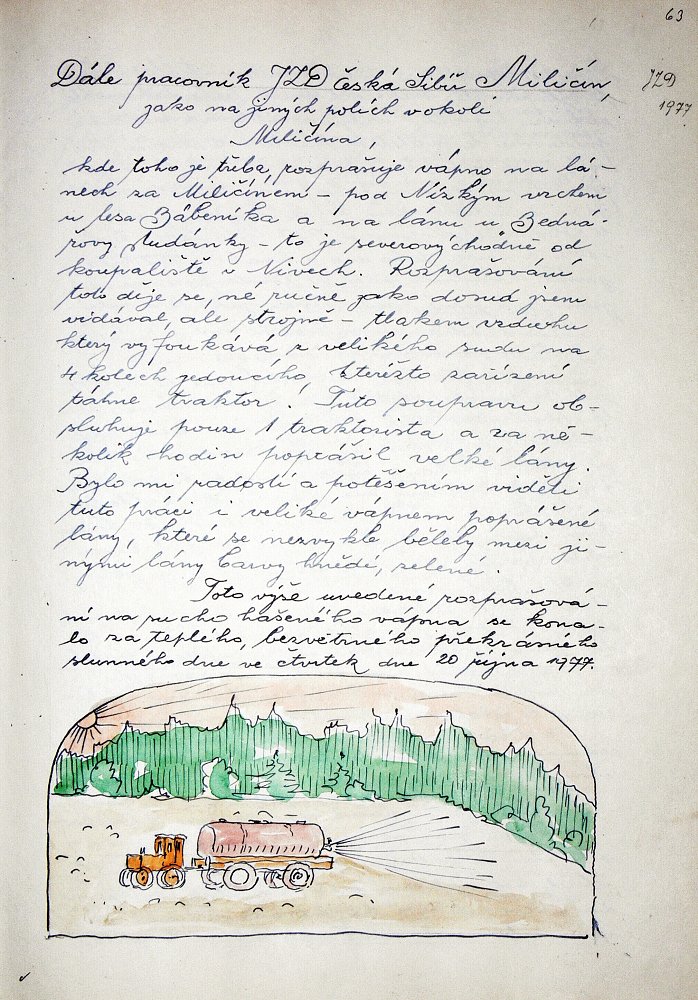 63
Dále pracovník JZD Česká Sibiř Miličín,
JZD
1977
jako na jiných polích v okolí
Miličína,
kde toho je třeba, rozprašuje vápno na lá-
nech za Miličínem - pod Nízkým vrchem
u lesa Bábeníka a na lánu u Bedná-
řovy studánky - to je severovýchodně od
koupaliště v Nivech. Rozprašování
toto děje se, né ručně jako dosud jsem
vídával, ale strojně - tlakem vzduchu
který vyfoukává z velikého sudu na
4 kolech jedoucího, kterézto zařízení
táhne traktor! Tuto soupravu ob-
sluhuje pouze 1 traktorista a za ně-
kolik hodin poprášil velké lány.
Bylo mi radostí a potěšením viděti
tuto práci i veliké vápnem poprášené
lány, které se nezvykle bělely mezi ji-
nými lány barvy hnědé, zelené.
Toto výše uvedené rozprašová-
ní na sucho hašeného vápna se kona-
lo za teplého, bezvětrného překrásného
slunného dne ve čtvrtek dne 20 října 1977.